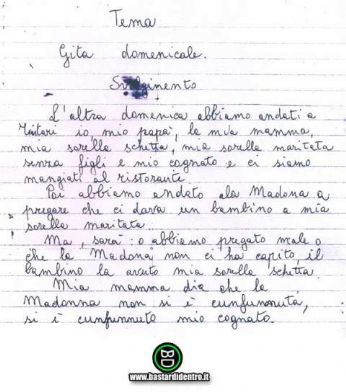 Tema
Gita domenicale.
Svolgimento
L'altra domenica abbiamo andati a
Tintari io, mio papà, la mia mamma,
mia sorella schetta, mia sorella maritata
senza figli e mio cognato e ci siamo
mangiati al ristorante.
Poi abbiamo andato ala Madona a
pregare che ci dava un bambino a mia
sorella maritata.
Ma, sarà: o abbiamo pregato male o
che la Madona non ci ha capito, il
bambino la avuto mia sorella schetta.
Mia mamma dici che la
Madonna non si è cunfunnuta,
si è cunfunnuto mio cognato.
www.bastardidentro.it